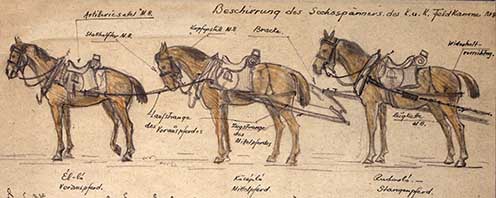 Beschirrung des Sechsspänners des K.u.K. Feldkanone
Artilleriesattel M.
Stallhalfter M.
Kopfgestell M.
Bracke
Widerhalt-
vorrichtung
Zugstrange
des Vorauspferdes
Zugstrange
des
Mittelpferdes
Zugkette
M.
Él-ló
Vorauspferd.
Középló
Mittelpferd.
Rudasló —
Stangenpferd.